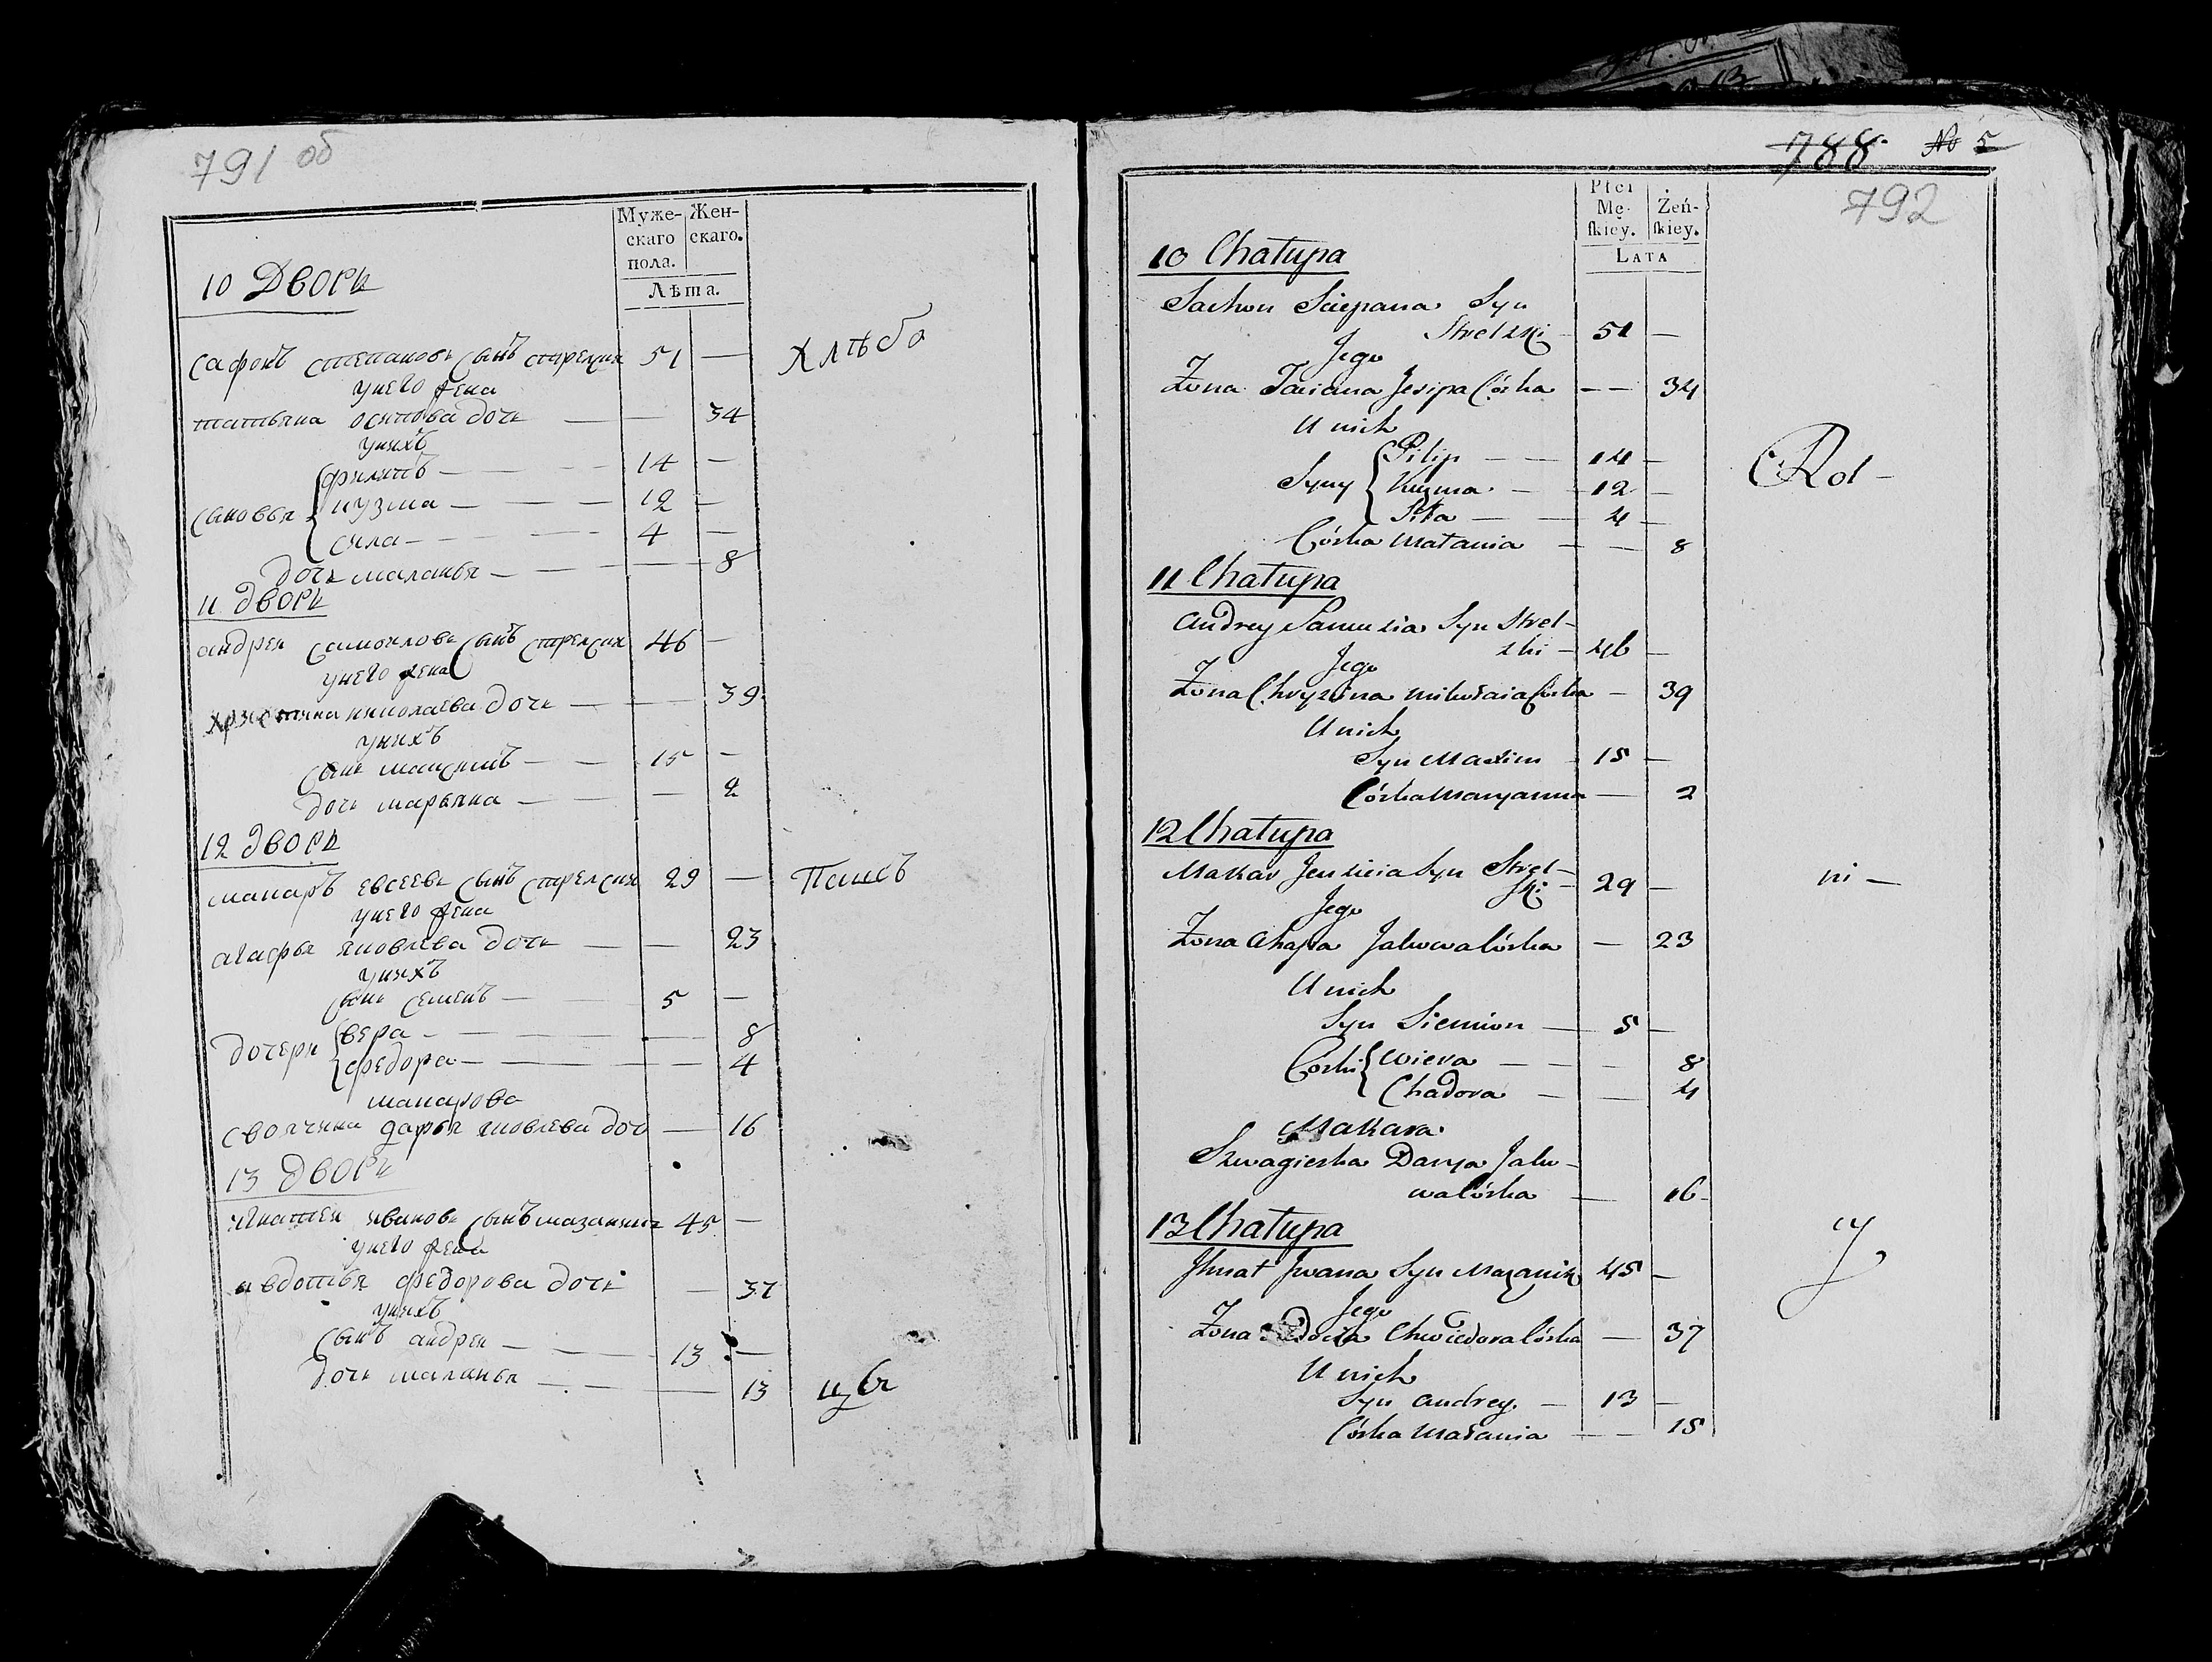 791 об
Муже- Жен-
скаго скаго.
пола.
Лѣта.
10 Дворъ
Сафонъ Степановъ Сынъ Стрелски 51 —
у него жена
татьяна осипова дочь — — 34
у нихъ
Сыновья { филипъ — — 14 —
кузма — — 12 —
сила — — 4 —
дочь маланья — — 8
Хлѣбо
11 дворъ
андреи Самоилова Сынъ Стрелски 46 —
у него жена
христина николаева дочь — — 39
у нихъ
Сынъ максимъ — — 15 —
дочь марьяна — — 2
12 дворъ
макаръ евсеева Сынъ Стрелски 29 — Пашъ
у него жена
агафья яковлева дочь — — 23
у нихъ
Сынъ Семенъ — 5 —
дочери { вера — — 8
федора — — 4
макарова
своячина дарья яковлева доч — 16
13 дворъ
игнатеи иванова Сынъ мазаникъ 45 —
у него жена
авдотья федорова дочь — 37
у нихъ
Сынъ андреи — 13 —
дочь маланья — — 13 цы
788 No 5
792
Płci
Mę- Żeń-
skiey. skiey.
LATA
10 Chałupa
Sachon Sciepana Syn
Strelzki 51 —
Jego
Żona Taciana Jesipa Córka — 34
U nich
Syny { Pilip — — 14 —
Kuzma — 12 —
Siła — 4 —
Córka Małania — — 8
Rol-
11 Chałupa
Andrey Samuela Syn Strel-
zki — 46 —
Jego
Żona Chryzina Mikołaia Córka — 39
U nich
Syn Maxim 15 —
Córka Maryanna — 2
12 Chałupa
Makar Jeuzieia Syn Strel-
ski — 29 — ni —
Jego
Żona Ahapa Jakowa Córka — 23
U nich
Syn Siemion — 5 —
Corki { Wiera — — 8
Chadora — — 4
Makara
Szwagierka Darya Jako-
wa Córka — 16
13 Chałupa
cy
Jhnat Jwana Syn Mazanik 45 —
Jego
Żona Chwiedora Córka — 37
U nich
Syn Andrey — 13 —
Córka Małania — — 15